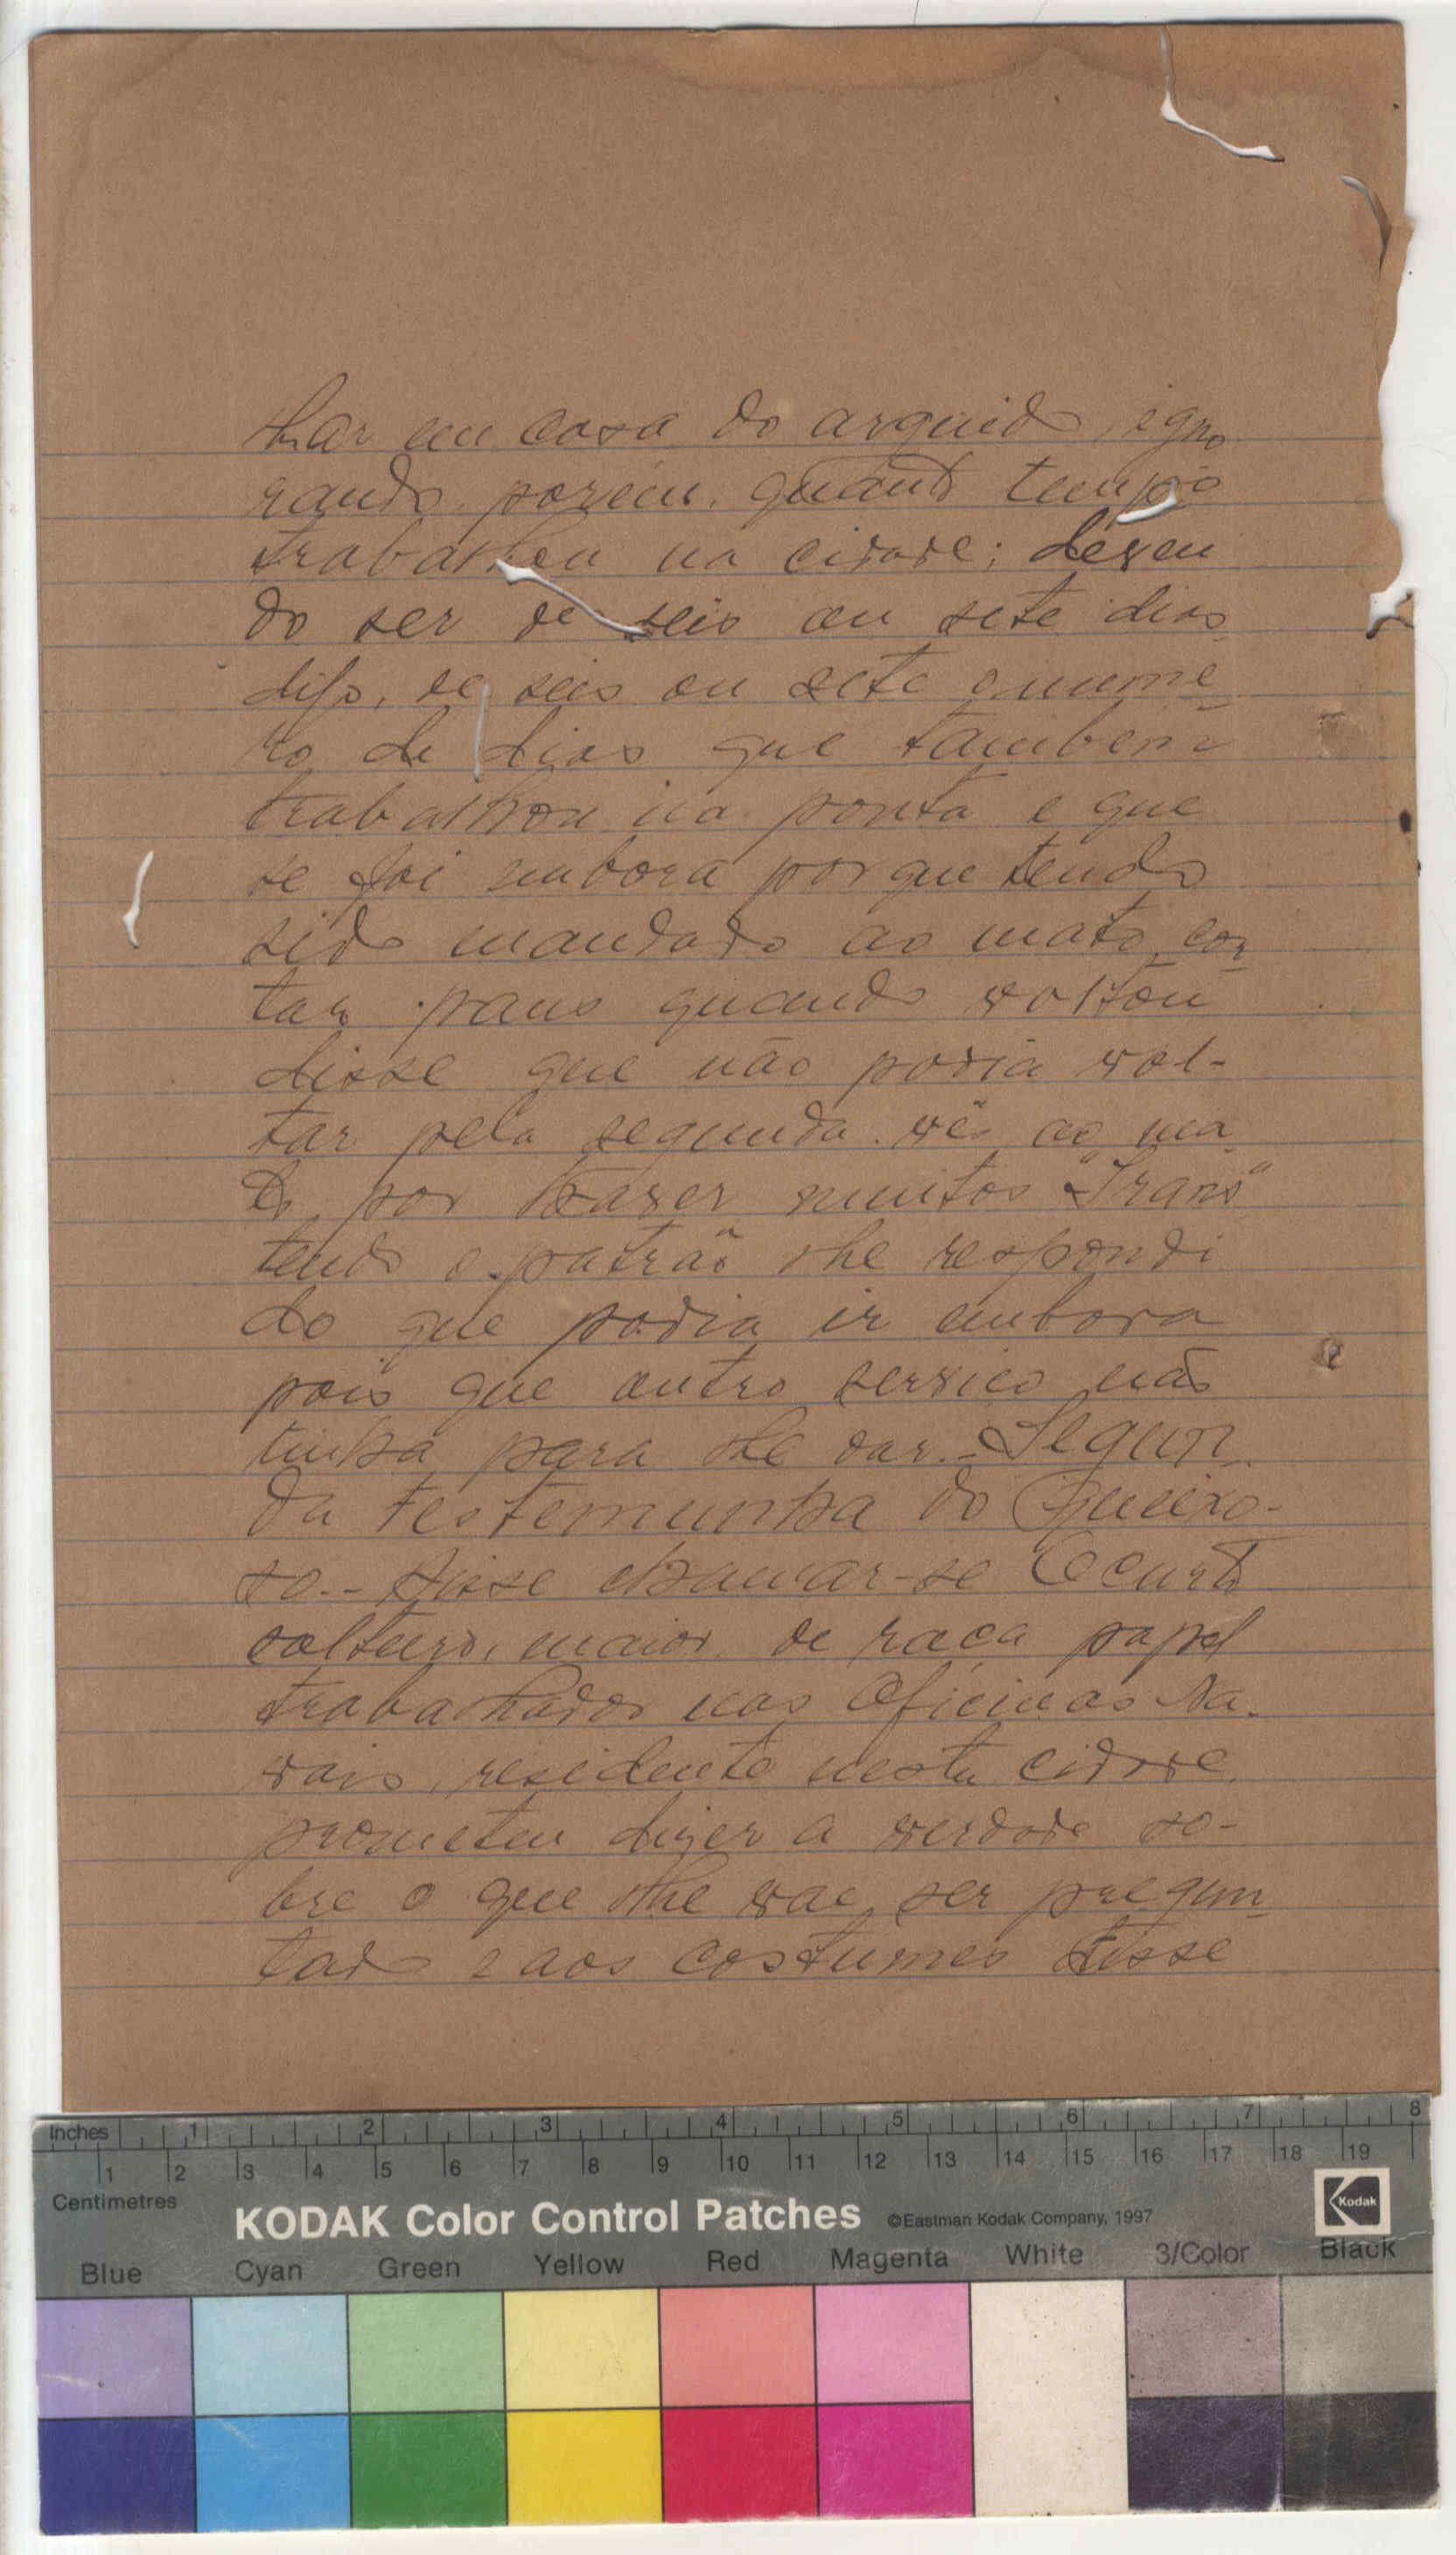 lhar em casa do arguido, igno
rando, porém, quanto tempo
trabalhou na cidade; deven
do ser de seis ou sete dias
digo, de seis ou sete o nume
ro de dias que tambem
trabalhou na ponta e que
se foi embora porque tendo
sido mandado ao mato cor
tar paus quando voltou
disse que não podia vol-
tar pela segunda vês ao ma
to por haver muitos "Irans"
tendo o patrão lhe respondi
do que podia ir embora
pois que outro servico não
tinha para lhe dar.- Segun
da testemunha do Queixo-
so.- Disse chamar-se
solteiro, maior de raça papel
trabalhador nas Oficinas Na
vais, residente nesta cidade
prometeu dizer a verdade so-
bre o que lhe vae ser pregun
tado e aos costumes disse
Inches 1 2 3 4 5 6 7 8
1 2 3 4 5 6 7 8 9 10 11 12 13 14 15 16 17 18 19
Centimetres
KODAK Color Control Patches ©Eastman Kodak Company, 1997 Kodak
Blue Cyan Green Yellow Red Magenta White 3/Color Black